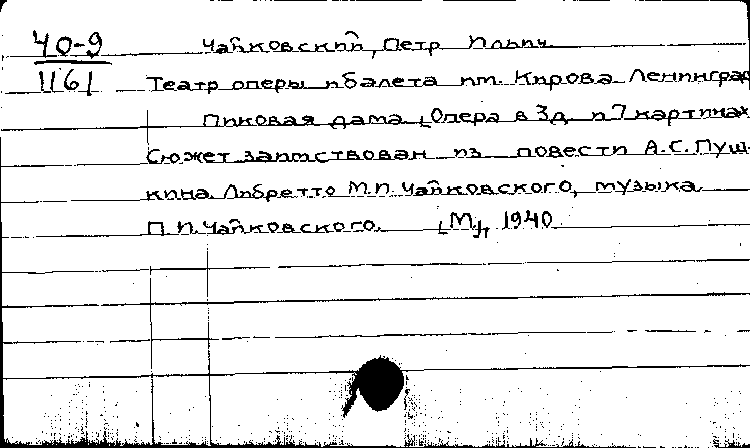 40-9
1161
Чайковский, Петр Ильич
Театр оперы и балета им. Кирова Ленинград
Пиковая дама. [Опера в 3 д. и 7 картинах
Сюжет заимствован из повести А.С. Пуш-
кина. Либретто М.И. Чайковского, музыка
П.И. Чайковского. [М.], 1940.